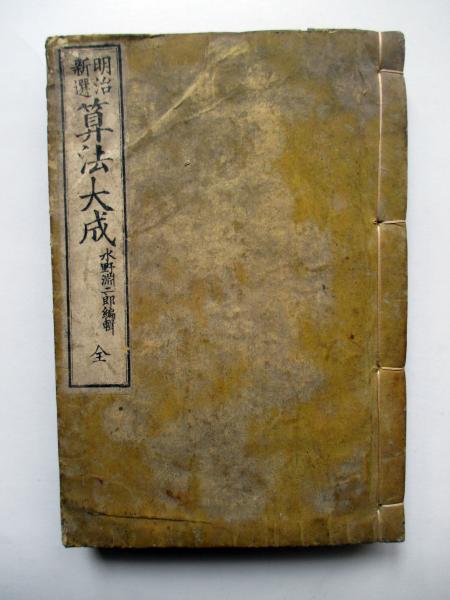 明治
新選
算法大成
水野渊二郎編輯
全